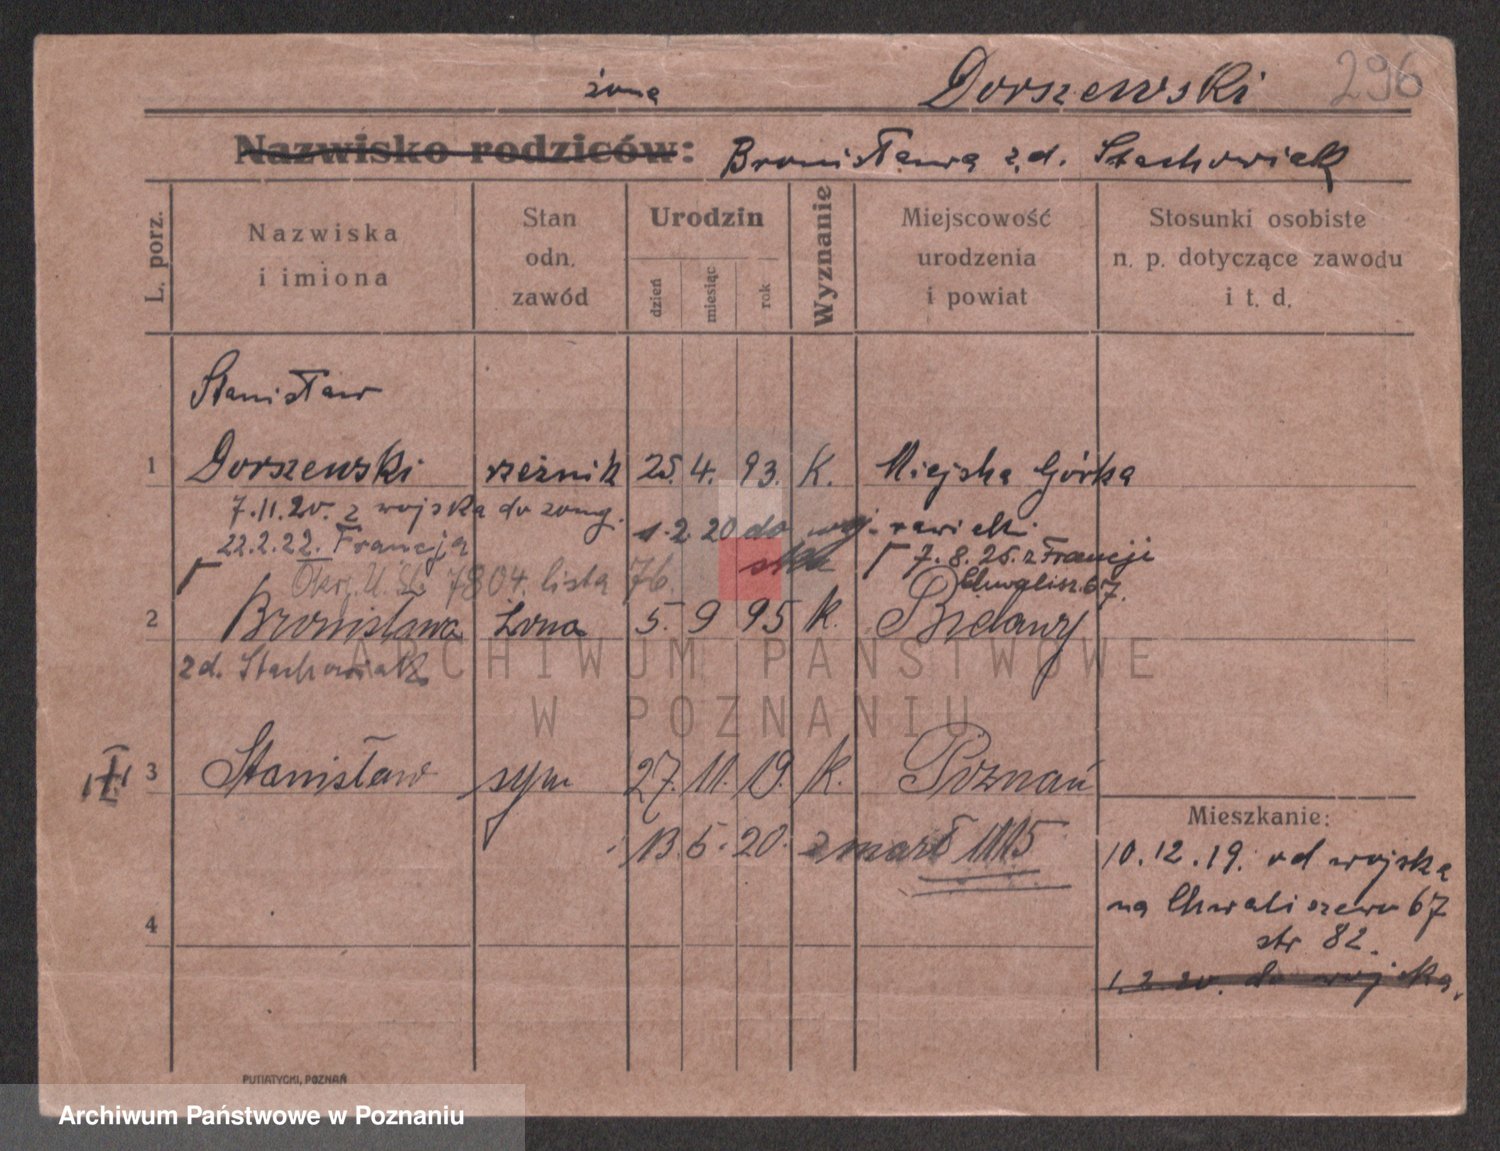 żona Dorszewski 296
Nazwisko rodziców: Bronisława z d. Stachowiak
L. porz.
Nazwiska i imiona
Stan odn. zawód
Urodzin
dzień
miesiąc
rok
Wyznanie
Miejscowość urodzenia i powiat
Stosunki osobiste n. p. dotyczące zawodu i t. d.
Stanisław
1 Dorszewski rzeźnik 25. 4. 93. K. Miejska Górka
7.11.20. z wojska do
1.2.20 do
rawicki
22.2.22. Francja
7.8.25. z Francji
7804. lista 76.
67.
2 Bronisława żona 5. 9 95 K. Bielawy
z d. Stachowiak
3 Stanisław syn 27. 11. 19. K. Poznań
13. 5. 20. zmarł 1115
Mieszkanie:
10.12.19. od wojska
na Chwaliszewo 67
str 82.
1.2.20. do wojska.
4
PUTIATYCKI, POZNAŃ
ARCHIWUM PAŃSTWOWE
W POZNANIU
Archiwum Państwowe w Poznaniu